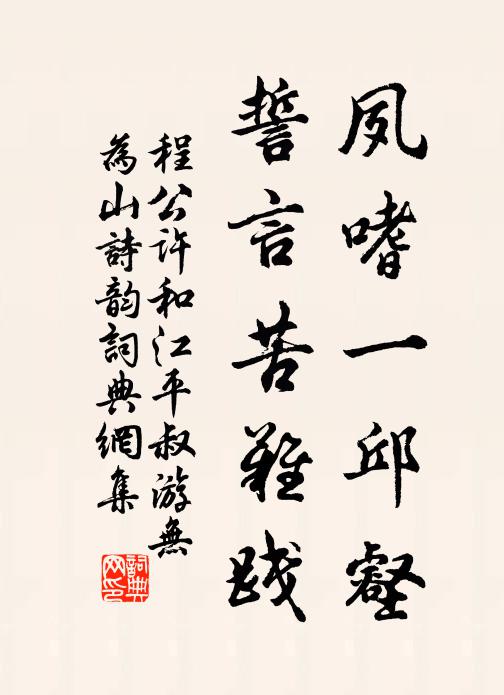 夙嗜一邱壑
誓言苦難践
程公许和江平叔游無
為山詩韵詞典網集
詞典网印